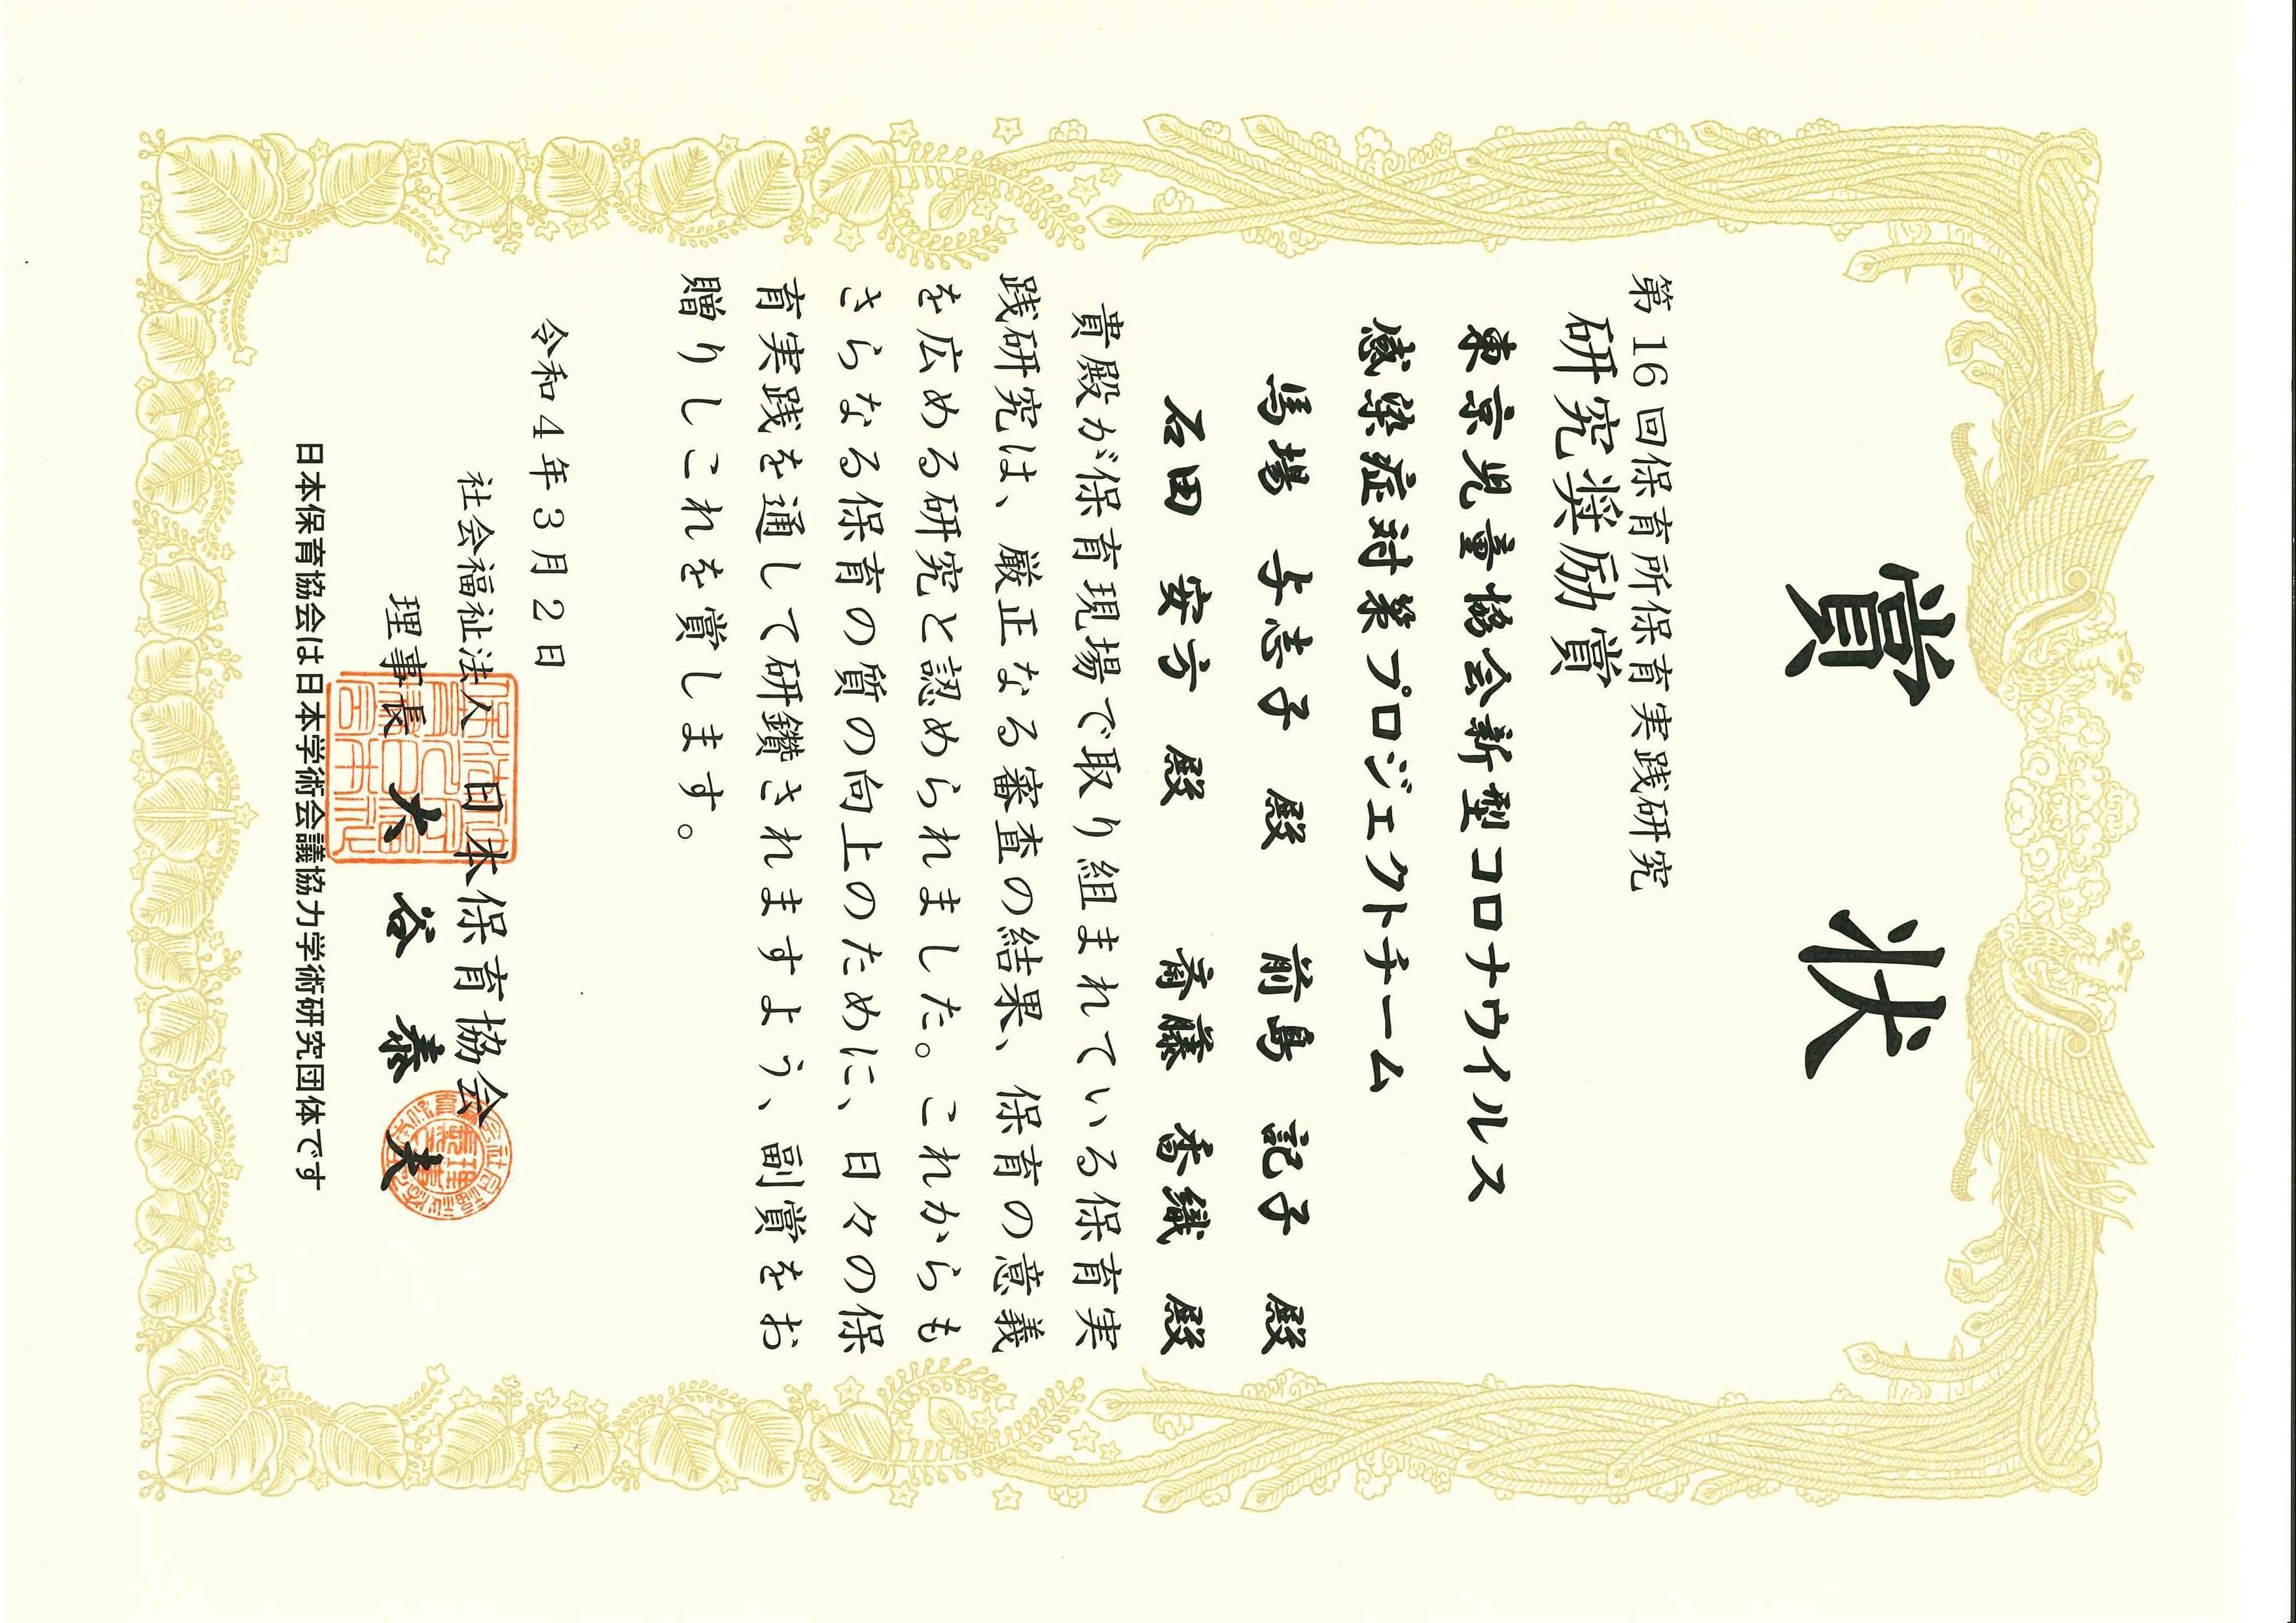 賞状
第16回保育所保育実践研究
研究奨励賞
東京児童協会新型コロナウイルス
感染症対策プロジェクトチーム
馬場 与志子 殿 前島 記子 殿
石田 安方 殿 斉藤 香織 殿
貴殿が保育現場で取り組まれている保育実
践研究は、厳正なる審査の結果、保育の意義
を広める研究と認められました。これからも
さらなる保育の質の向上のために、日々の保
育実践を通して研鑽されますよう、副賞をお
贈りしこれを賞します。
令和4年3月2日
社会福祉法人 日本保育協会
理事長 大谷 泰夫
日本保育協会は日本学術会議協力学術研究団体です